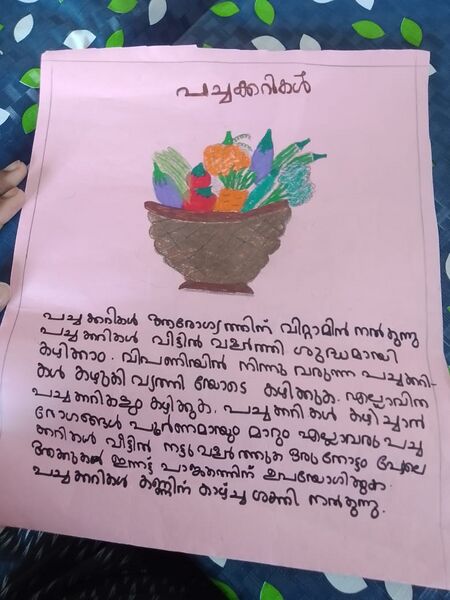 പച്ചക്കറികൾ
പച്ചക്കറികൾ ആരോഗ്യത്തിന് വിറ്റാമിൻ നൽകുന്നു
പച്ചക്കറികൾ വീട്ടിൽ വളർത്തി ശുദ്ധമായി
കഴിക്കാം. വിപണിയിൽ നിന്നു വരുന്ന പച്ചക്കറി-
കൾ കഴുകി വൃത്തി യോടെ കഴിക്കുക. എല്ലാവിന
പച്ചക്കറികളും കഴിക്കുക. പച്ചക്കറികൾ കഴിച്ചാൻ
രോഗങ്ങൾ പൂർണമായും മാറും എല്ലാവരു പച്ച
ക്കറികൾ വീട്ടിൽ നട്ടുവളർത്തുക ഒരു നോട്ടം പോലെ
പാചകത്തിന് ഉപയോഗിക്കുക.
പച്ചക്കറികൾ കണ്ണിന് കാഴ്ച ശക്തി നൽകുന്നു.